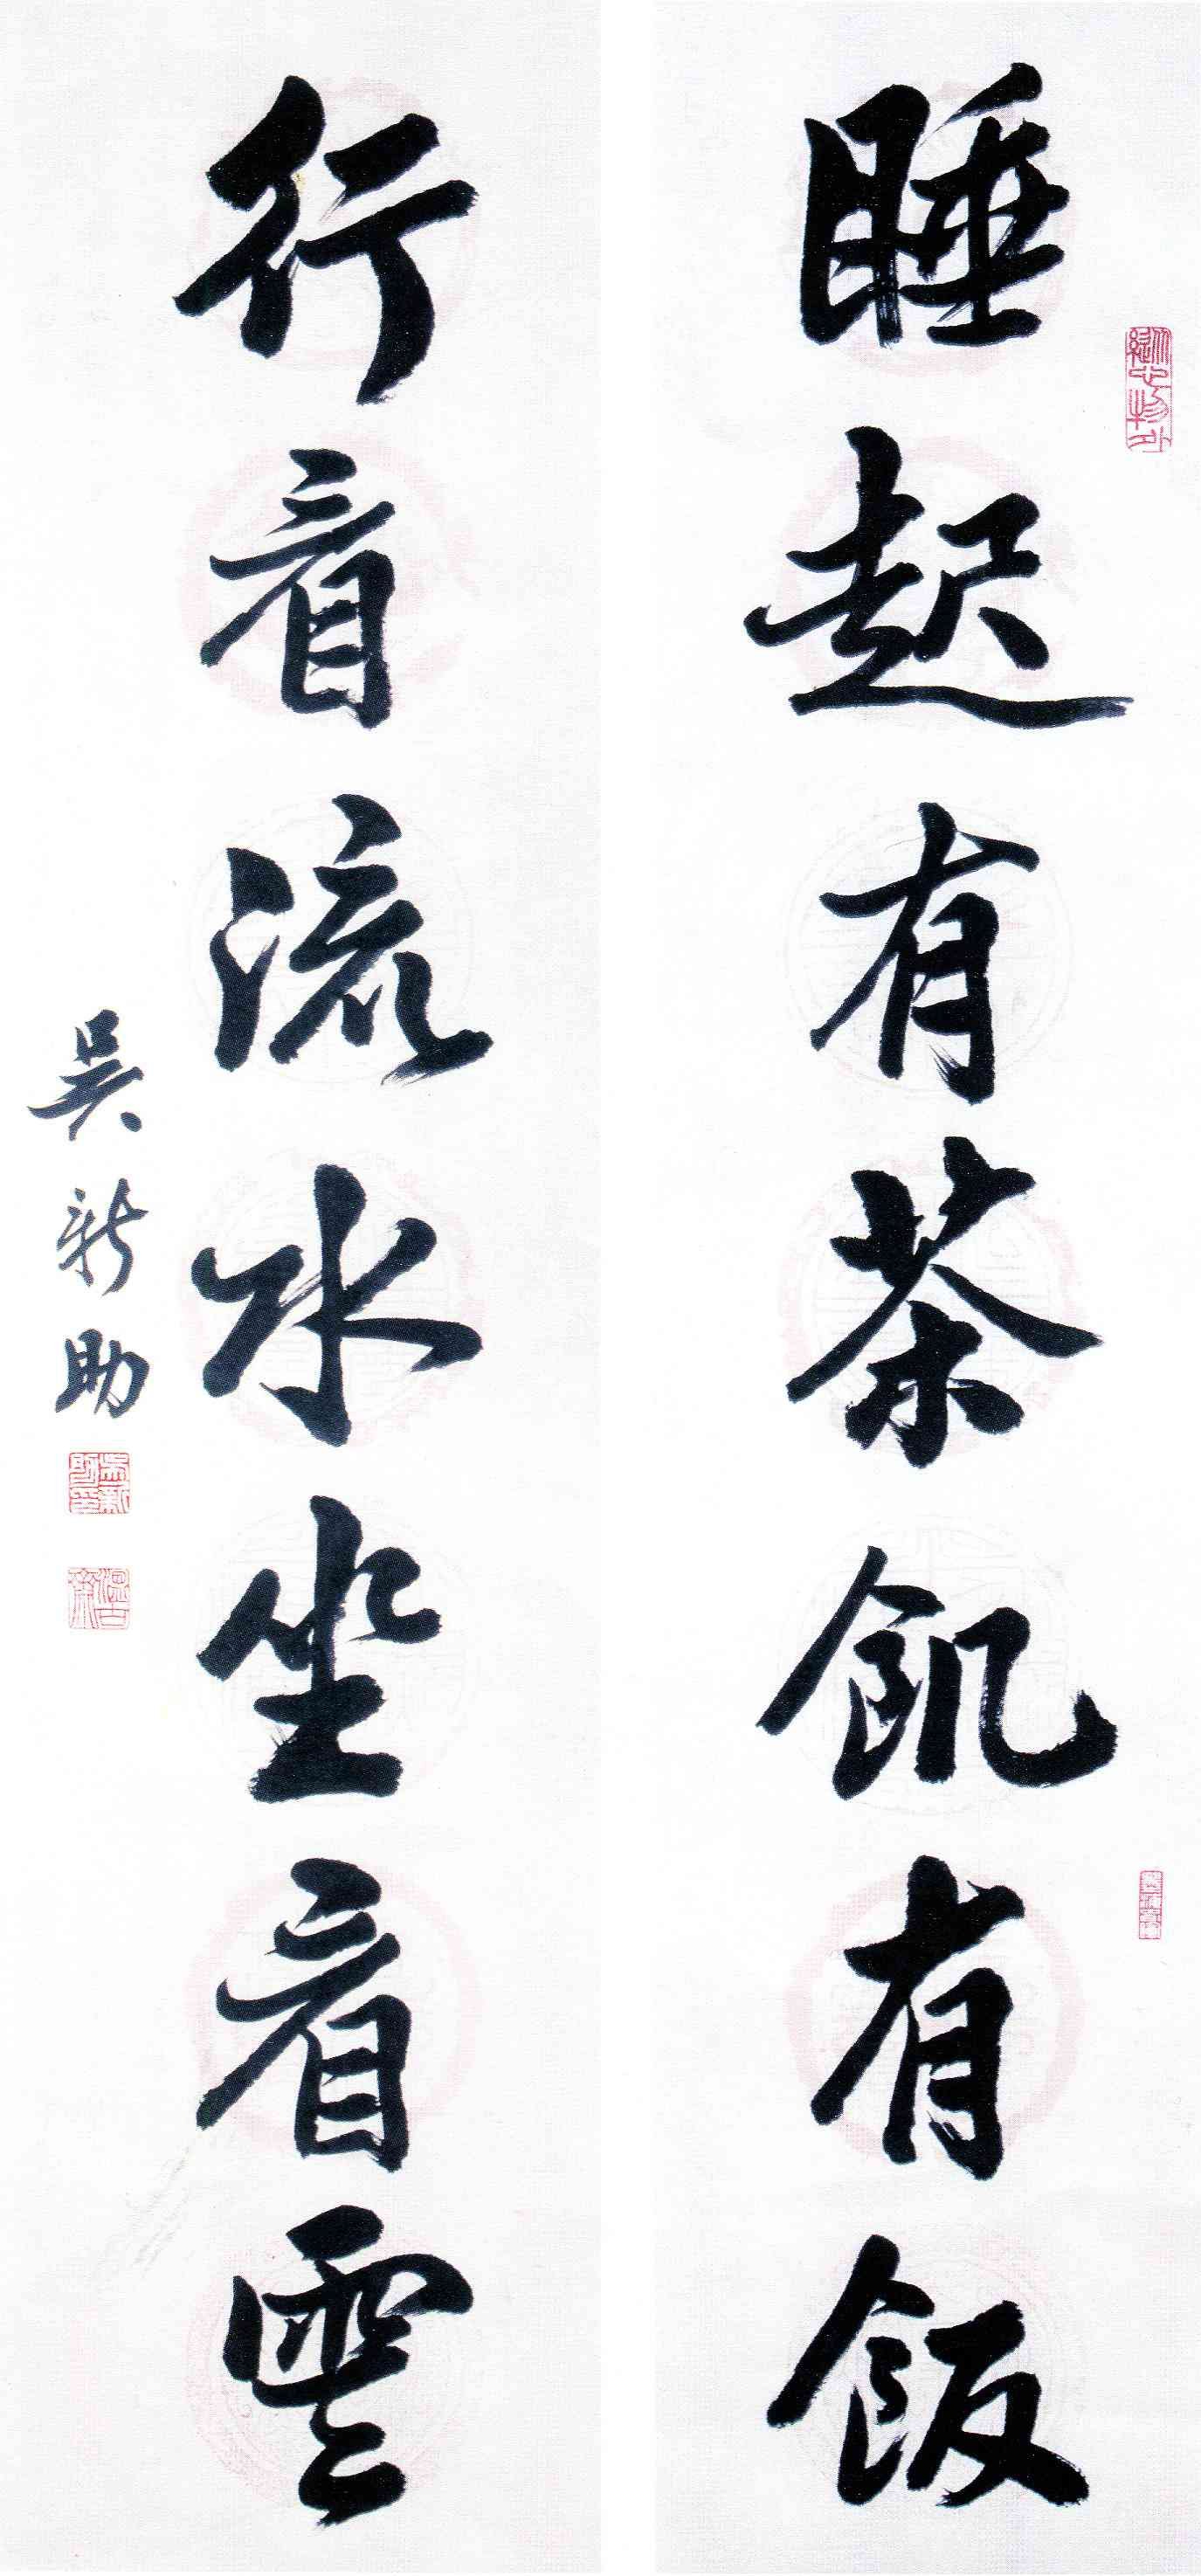 睡起有茶飢有飯
行看流水坐看雲
吳新助